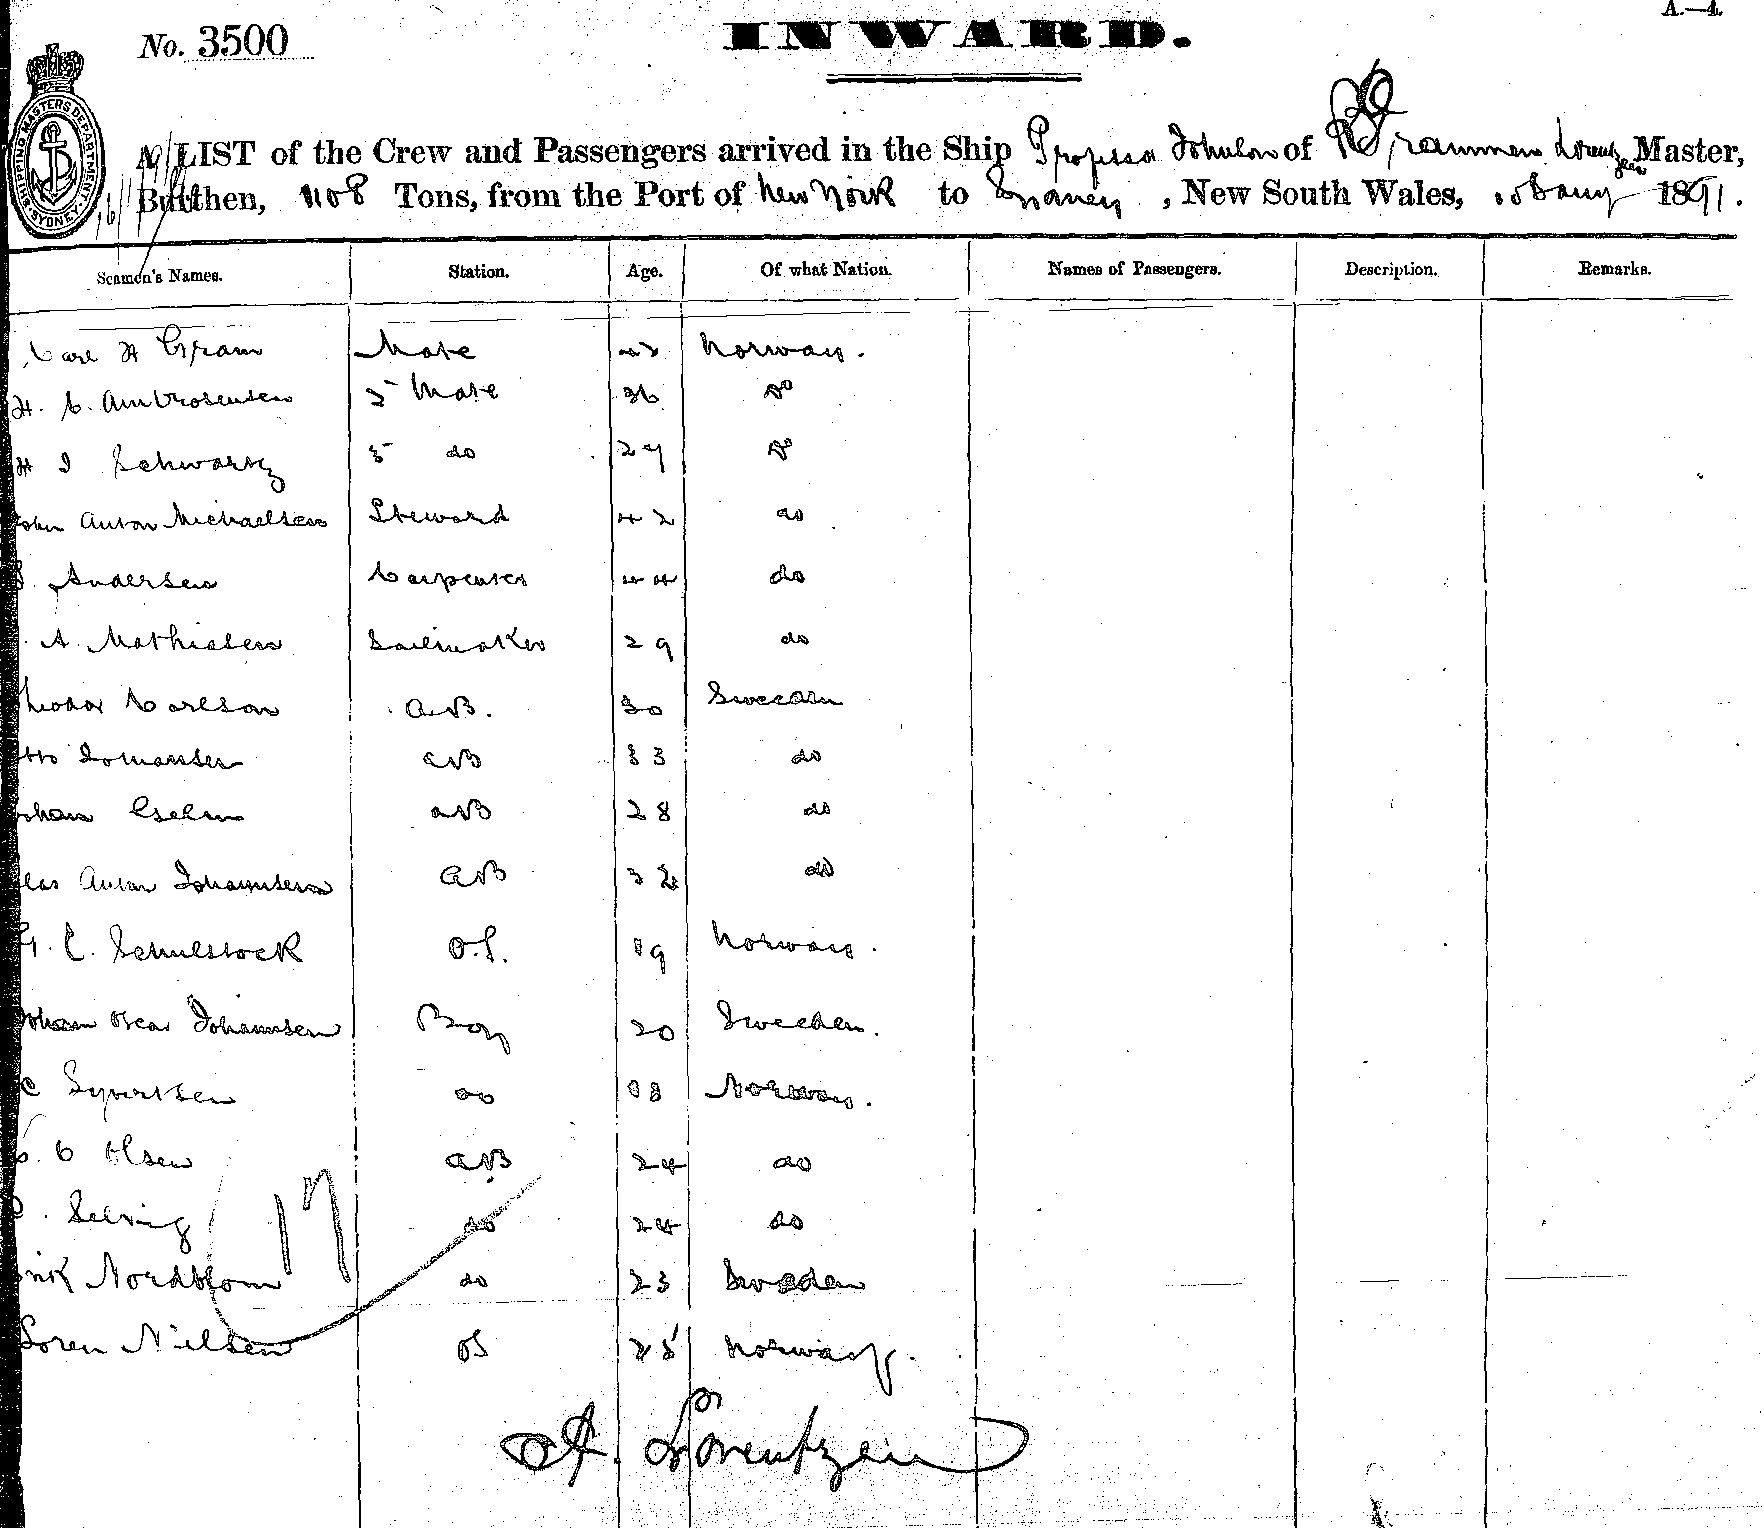 No. 3500
INWARD.
A.—4.
SHIPPING MASTERS DEPARTMENT SYDNEY
LIST of the Crew and Passengers arrived in the Ship Johnson of Lorentzen Master,
Burthen, 1108 Tons, from the Port of New York to Sydney, New South Wales, 1891.
Seamen's Names. Station. Age. Of what Nation. Names of Passengers. Description. Remarks.
Carl H Gram Mate Norway.
H. C. Ambrosensen 2 Mate 36 Do
H I Schwartz 3 do 27 Do
John Anton Michaelsen Steward 42 do
Andersen Carpenter 44 do
A. Mathiesen Sailmaker 29 do
Theodor Carlson A.B. 30 Sweden
Otto Johansen AB 33 do
Johan AB 28 do
Anton Johannsen AB 32 do
C. Schulstock O.S. 19 Norway.
Johan Oscar Johannsen Boy 20 Sweden.
Syvertsen do 18 Norway.
C Olsen AB 24 do
Selvig do 24 do
17
Nordblom do 23 Sweden
Soren Nielsen OS 25 Norway.
A. Lorentzen